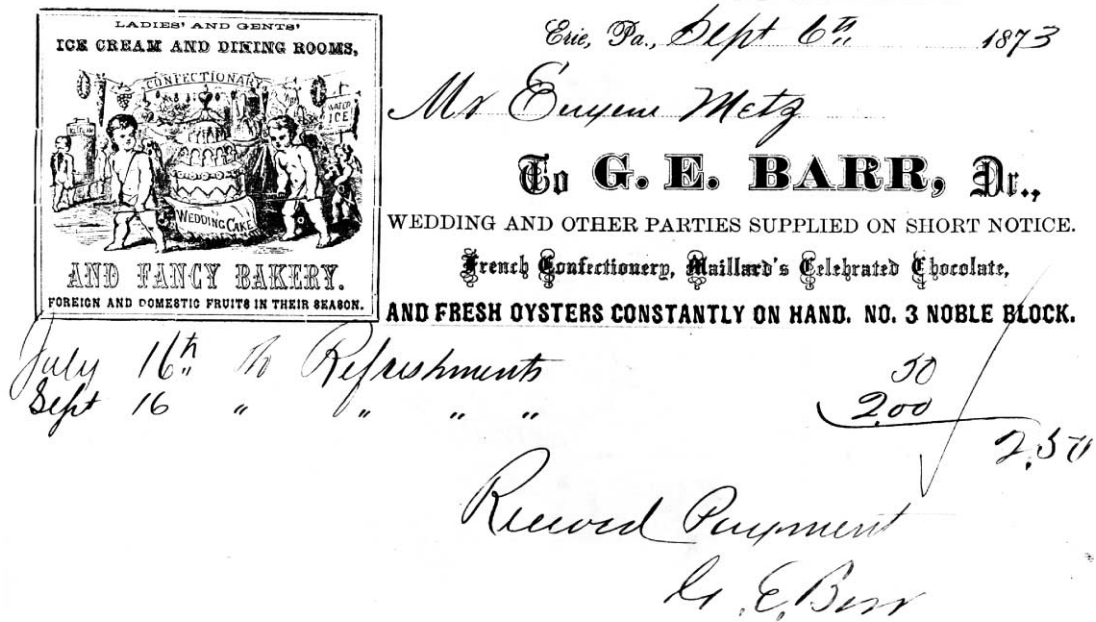 LADIES' AND GENTS'
ICE CREAM AND DINING ROOMS,
CONFECTIONARY
WATER
ICE
WEDDING CAKE
AND FANCY BAKERY.
FOREIGN AND DOMESTIC FRUITS IN THEIR SEASON.
Erie, Pa., Sept 6th 1873
Mr Eugene Metz
To G. E. BARR, Dr.,
WEDDING AND OTHER PARTIES SUPPLIED ON SHORT NOTICE.
French Confectionery, Maillard's Celebrated Chocolate,
AND FRESH OYSTERS CONSTANTLY ON HAND. NO. 3 NOBLE BLOCK.
July 16th To Refreshments 50
Sept 16 " " " " 2,00
2,50
Received Payment
G. E. Barr